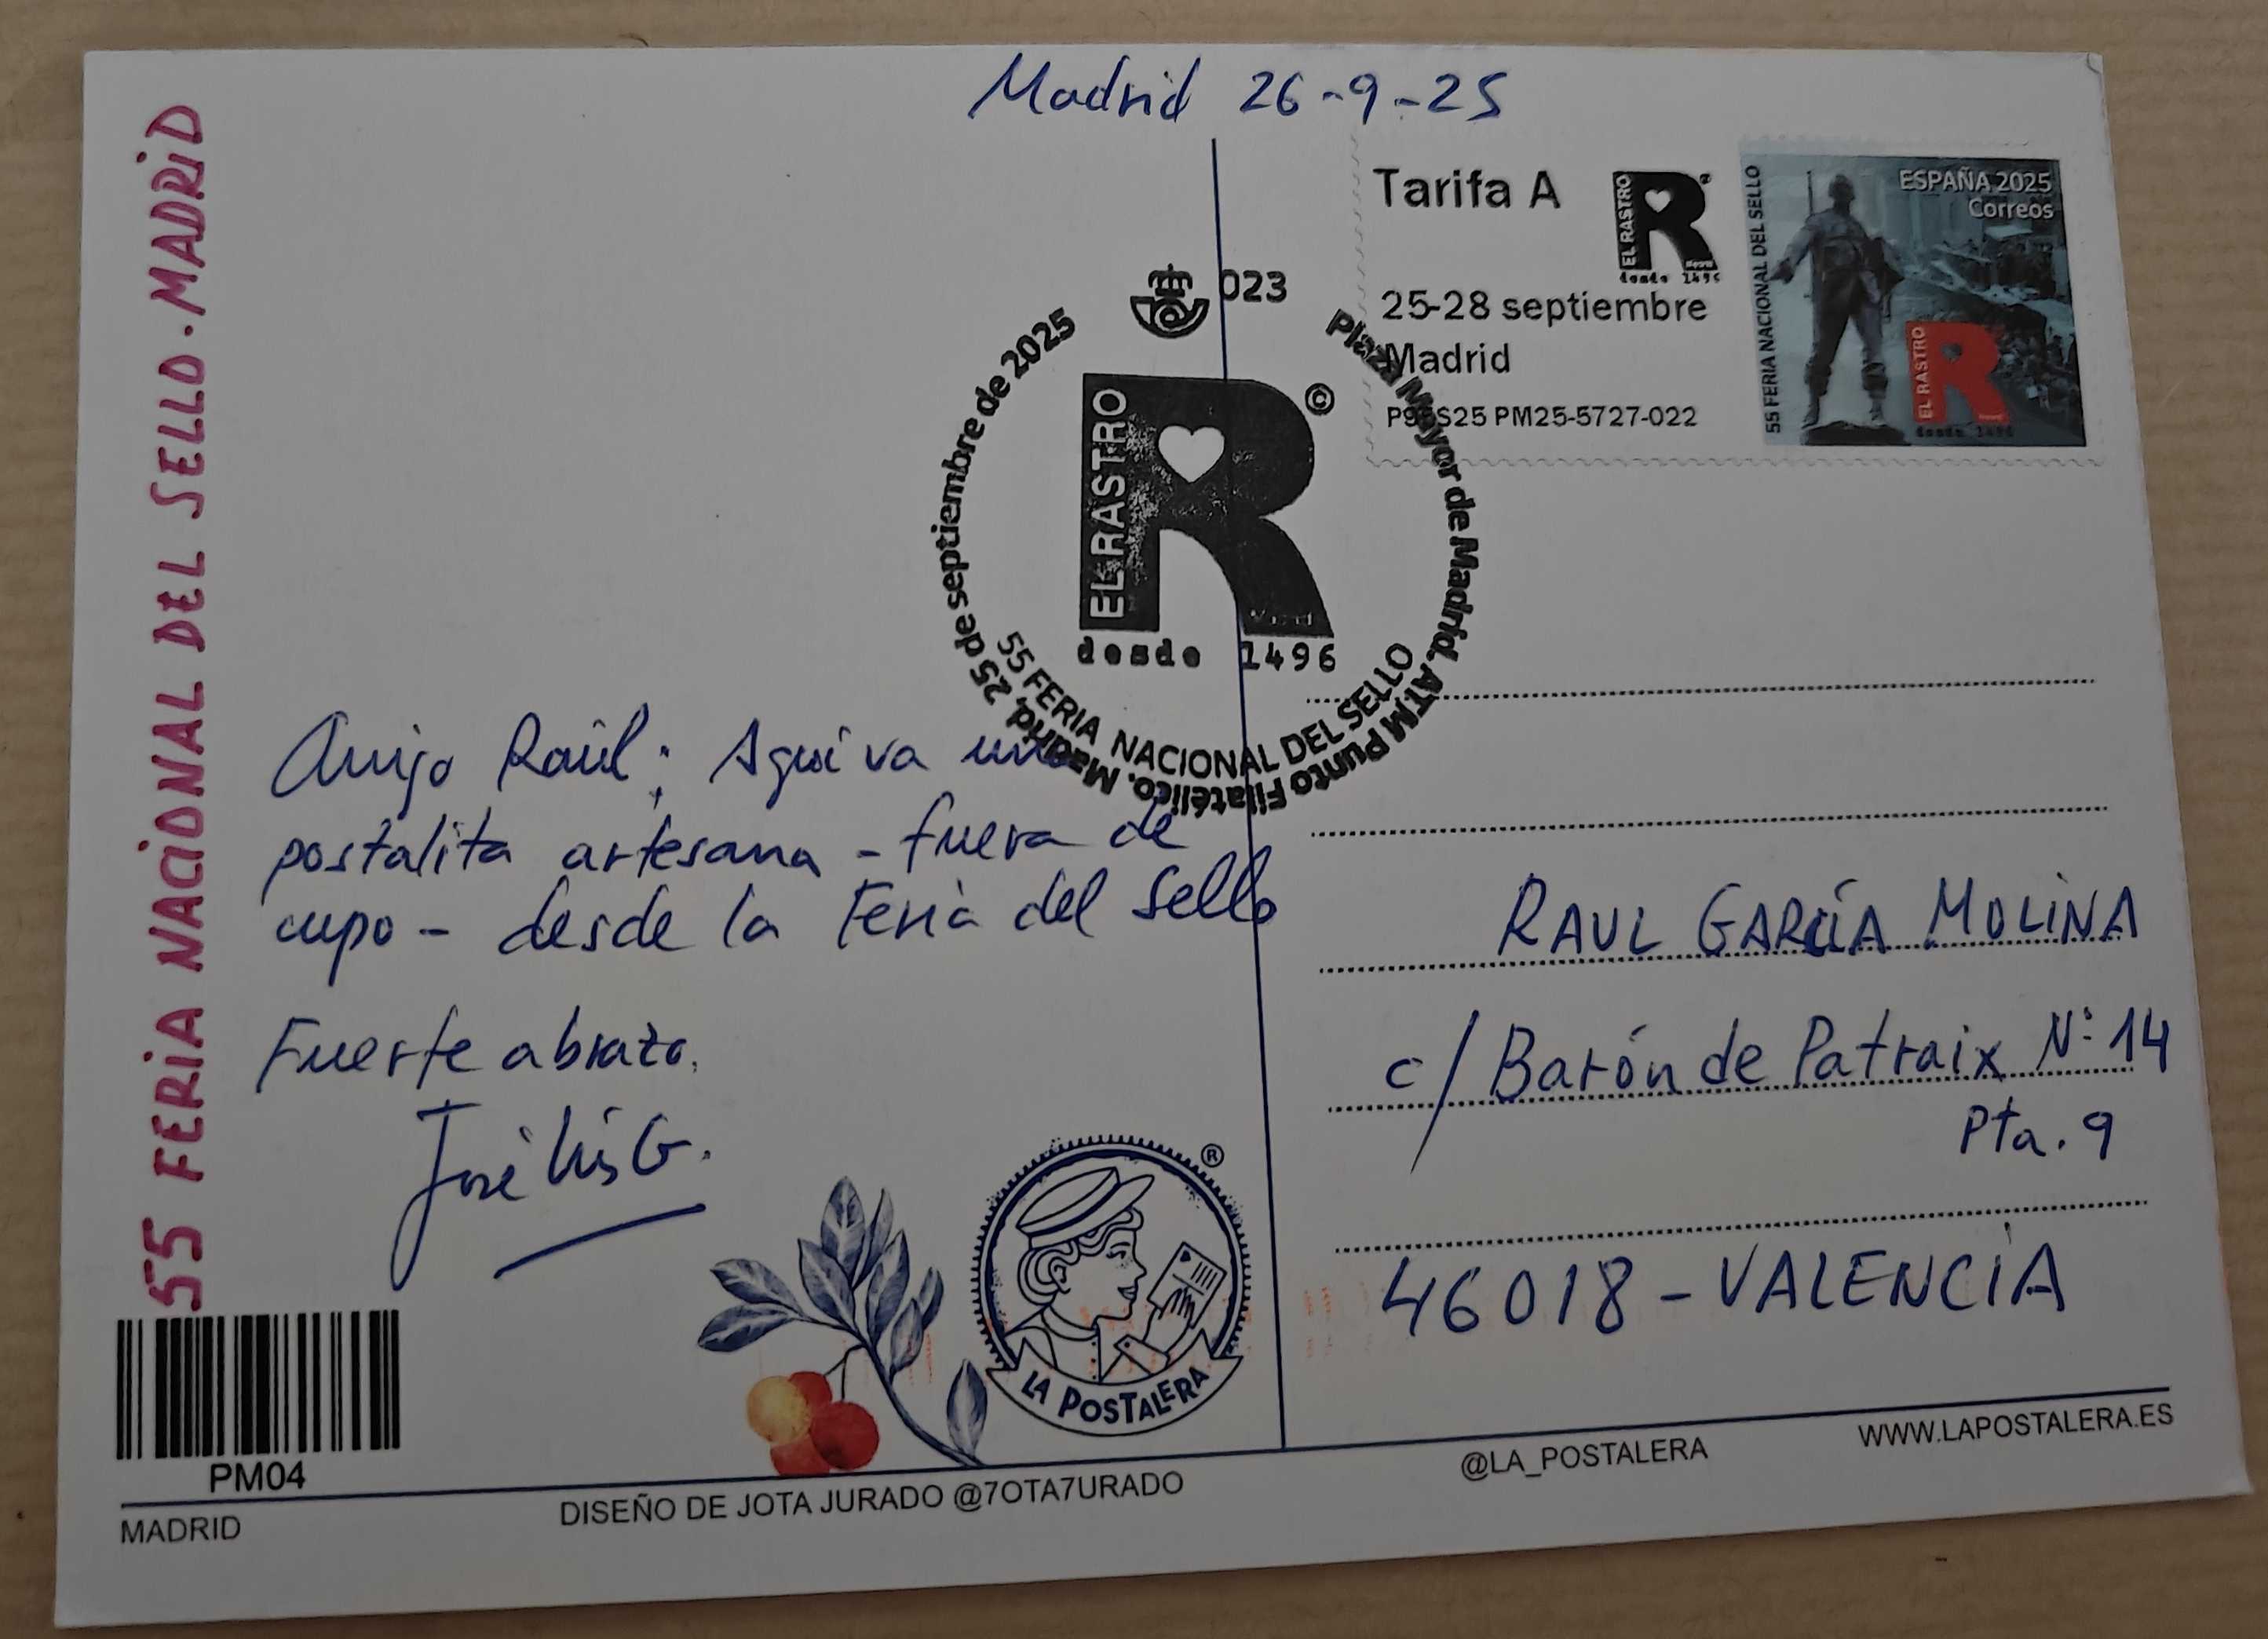 Madrid 26-9-25
55 FERIA NACIONAL DEL SELLO · MADRID
Tarifa A
EL RASTRO
R
desde 1496
25-28 septiembre
Madrid
PM25-5727-022
55 FERIA NACIONAL DEL SELLO
ESPAÑA 2025
Correos
EL RASTRO
R
desde 1496
023
Plaza Mayor de Madrid. ATM Punto Filatélico. Madrid, 25 de septiembre de 2025
EL RASTRO
R
©
desde 1496
55 FERIA NACIONAL DEL SELLO
Amigo Raúl: Aquí va una
postalita artesana - fuera de
cupo - desde la Feria del Sello
Fuerte abrazo.
José Luis G.
RAUL GARCÍA MOLINA
c/ Barón de Patraix Nº 14
Pta. 9
46018 - VALENCIA
®
LA POSTALERA
PM04
MADRID
DISEÑO DE JOTA JURADO @7OTA7URADO
@LA_POSTALERA
WWW.LAPOSTALERA.ES